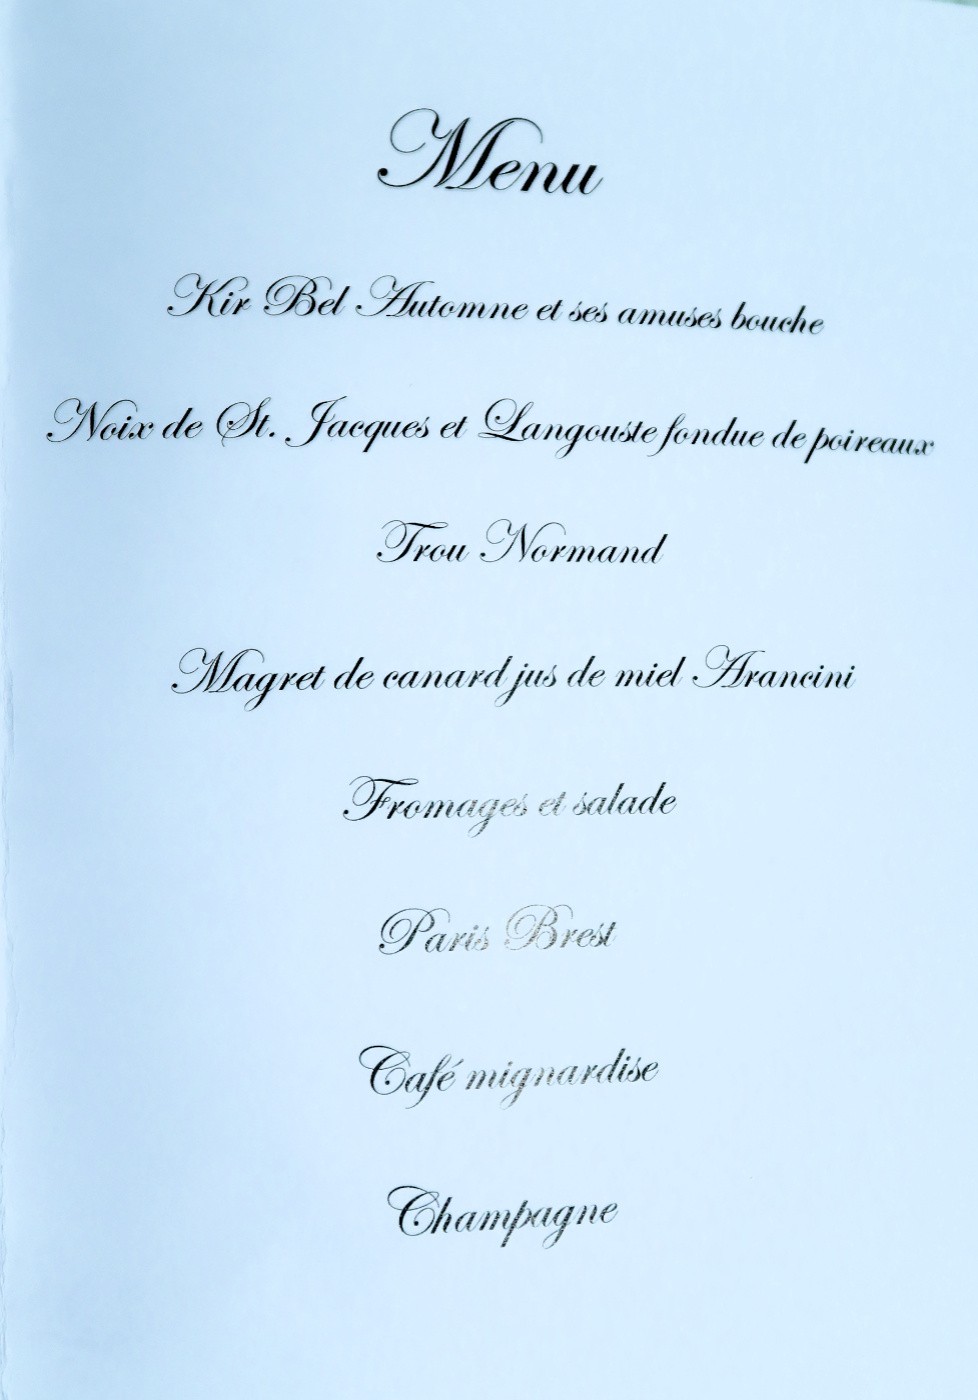 Menu
Kir Bel Automne et ses amuses bouche
Noix de St. Jacques et Langouste fondue de poireaux
Trou Normand
Magret de canard jus de miel Arancini
Fromages et salade
Paris Brest
Café mignardise
Champagne